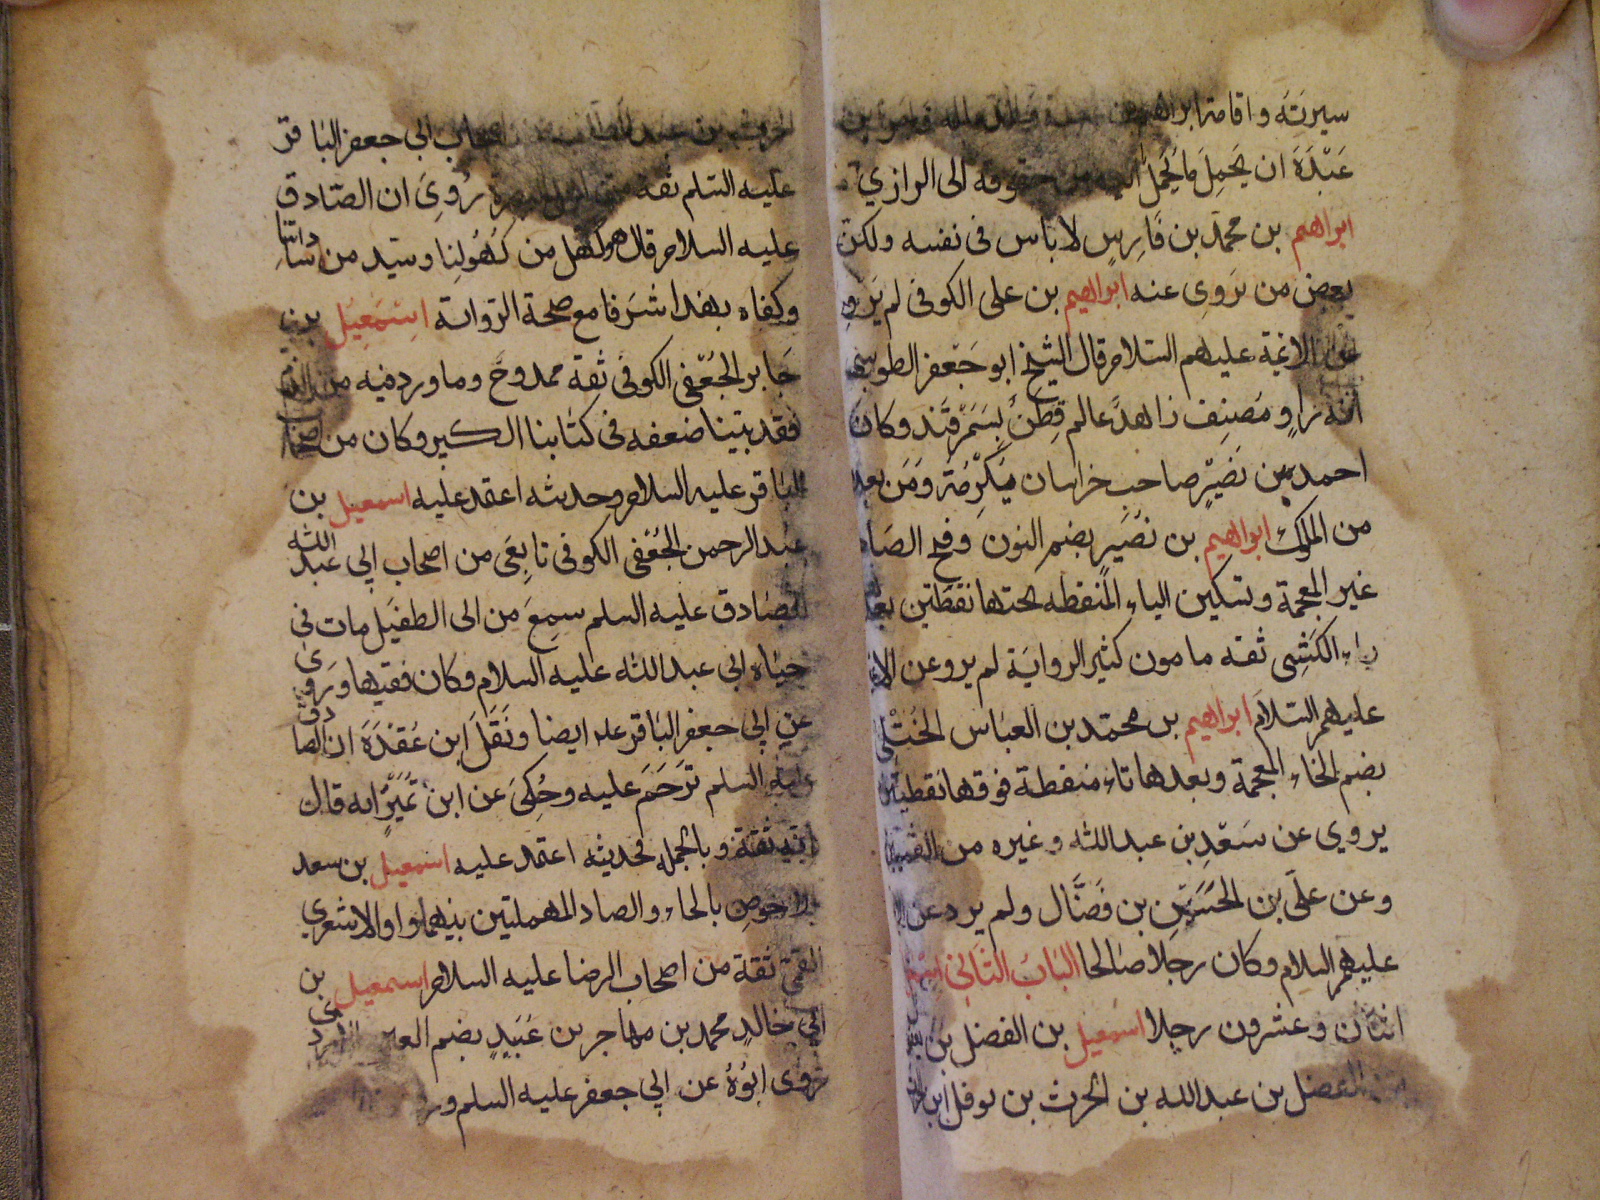 سيرته و اقامة ابراهيم بن
عَبْدَةَ ان يَحمِلَ ما يُحمل اليه من حقوقه الى الرازي
ابراهيم بن محمّد بن فَارِسٍ لا باس فى نفسه ولكن
بعض من يَروِى عنه ابراهيم بن على الكوفى لم يَروِ
عن الائمة عليهم السلام قال الشيخ ابو جَعفر الطوسى
انه راوٍ مُصَنِف زاهد عالم قطن بِسَمَرقَند وكان
احمد بن نَصْيرٍ صاحب خراسان يُكرّمه ومَن بعد
من الملوك ابراهيم بن نُصَيرٍ بضم النون وفتح الصاد
غير المعجمة وتسكين الياء المنقطه تحتها نقطتين بعد
راء الكَشِى ثقه مامون كثير الرواية لم يرو عن الائ
عليهم السلام ابراهيم بن محمّد بن العباس الخُتلى
بضم الخاء المعجمة وبعدها تاء منقطة فوقها نقطتين
يروي عن سَعْدِ بن عبد الله وغيره من القميين
وعن علىّ بن الحَسَنِ بن فَضّال ولم يرو عن
عليهم السلام وكان رجلا صالحا البَابُ الثّانى اسمعيل
اثنان وعشرون رجلا اسمعيل بن الفضل بن
الفضل بن عبد الله بن الحرث بن نوفل ابن
الحرث بن عبد المطلب من اصحاب ابى جعفر الباقر
عليه السلم ثقة من اهل البصرة رُوِىَ ان الصّادق
عليه السلام قال هو كهل من كُهُولِنا وسيد من ساداتنا
وكفاه بهذا شَرَفا مع صحة الرواية اسمعيل بن
جَابر الجُعْفى الكوفىّ ثقة ممدوحٌ وما ورد فيه من الذم
فقد بيّنا ضعفه فى كتابنا الكبير وكان من اصحاب
الباقر عليه السلام وحديثه اعتمد عليه اسمعيل بن
عبد الرحمن الجُعْفى الكوفى تابِعَى من اصحاب ابى عبد الله
الصادق عليه السلم سمِعَ من ابى الطفيل مات فى
حياة ابى عبد الله عليه السلام وكان فقيها ورَوَى
عن ابى جعفر الباقر عله ايضا ونَقَلَ ابن عُقْدَةَ ان الصادق
عليه السلم تَرَحَّمَ عليه وحُكِىَ عن ابن نُمَيرٍ انه قال
انّه ثقة وبالجملة فحديثه اعتمد عليه اسمعيل بن سعد
الاحوص بالحاء والصاد المهملتين بينهما واو الاشعرى
القمى ثقة من اصحاب الرضا عليه السلام اسمعيل بن
ابى خالدٍ محمد بن مهاجر بن عُبَيدٍ بضم العين الازدى
رَوَى ابُوهُ عن ابى جعفر عليه السلم و